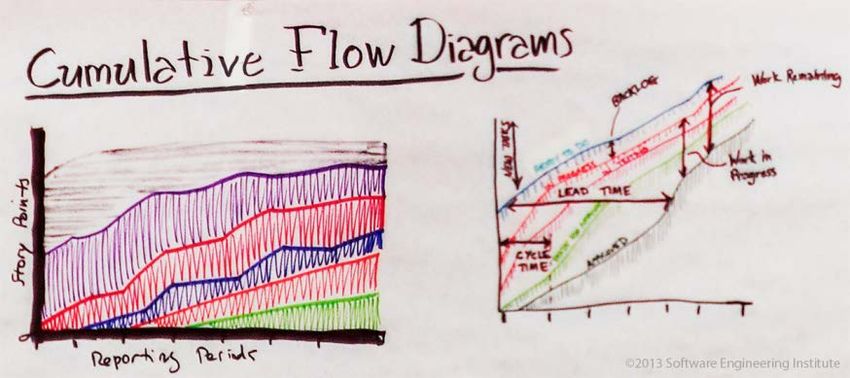 Cumulative Flow Diagrams
Story Points
Reporting Periods
BACKLOG
Work Remaining
NEW TASKS
READY TO DO
IN PROGRESS
IN TESTING
LEAD TIME
Work in
Progress
CYCLE
TIME
APPROVED
©2013 Software Engineering Institute